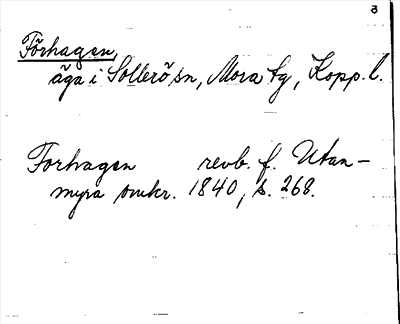 3
Förhagen,
äga i Sollerö sn, Mora tg, Kopp. l.
Forhagen revb. f. Utan-
myra omkr. 1840, s. 268.